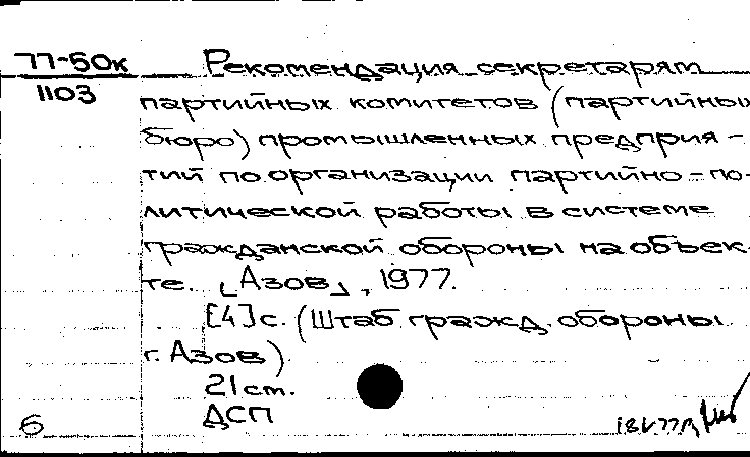 77-50к Рекомендация секретарям
1103 партийных комитетов (партийных
бюро) промышленных предприя-
тий по организации партийно-по-
литической работы в системе
гражданской обороны на объек-
те. [Азов], 1977.
[4]с. (Штаб гражд. обороны
г. Азов).
21 см.
ДСП
б